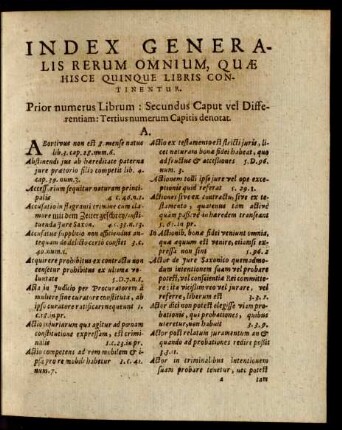 INDEX GENERA-
LIS RERUM OMNIUM, QUÆ
HISCE QUINQUE LIBRIS CON-
TINENTUR.
Prior numerus Librum : Secundus Caput vel Diffe-
rentiam: Tertius numerum Capitis denotat.
A.
ABortivus non est 5. mense natus
lib. 5. cap. 25. num. 6.
Abstinendi jus ab hereditate paterna
jure prætorio filiis competit lib. 4.
cap. 39. num. 7.
Accessorium sequitur naturam princi-
palis
Accusatio in flagranti crimine cum cla-
more
tuenda jure Saxon. 4. c. 33. n. 13.
Accusatus supplicio non afficiendus an-
tequam de delicto certo constet 3. c.
40. num. 1.
Acquirere prohibitus ex contractu non
censetur prohibitus ex ultima vo-
luntate 5. D. 7. n. 1.
Acta in Judicio per Procuratorem à
muliere sine curatore constituto, ab
ipso curatore ratificari nequeunt 1.
c. 15. in pr.
Actio injuriarum quæ agitur ad pœnam
constitutione expressam, est crimi-
nalis 1. c. 23. in pr.
Actio competens ad rem mobilem & i-
psa pro re mobili habetur 2. c. 41.
num. 7.
Actio ex testamento est stricti juris, li-
cet naturam bonæ fidei habeat, quo
ad fructus & accessiones 5. D. 96.
num. 3.
Actionem tolli ipso jure vel ope exce-
ptionis quid referat 1. c. 29. 1.
Actiones sive ex contractu, sive ex te-
stamento, quatenus tam active
quàm passivè in hæredem transeant
3. 81. in pr.
In Actionib. bonæ fidei veniunt omnia,
quæ æquum est venire, etiamsi ex-
pressa non sint 5. 96. 2
Actor de Jure Saxonico quemadmo-
dum intentionem suam vel probare
potest, vel conscientiæ Rei committe-
re: ita vicissim reo vel jurare, vel
referre, liberum est 3. 3. 1.
Actor dici non potest elegisse viam pro-
bationis, qui probationes, quibus
uteretur, non habuit 3. 3. 9.
Actor post relatum juramentum an &
quando ad probationes redire possit
3. 3. 11.
Actor in criminalibus intentionem
suam probare tenetur, nec potest
a jam